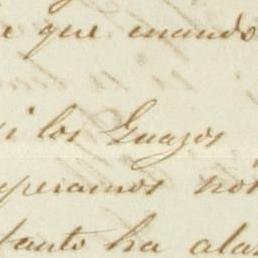 e que cuando
si los Guazos
speramos nos
tanto ha alar